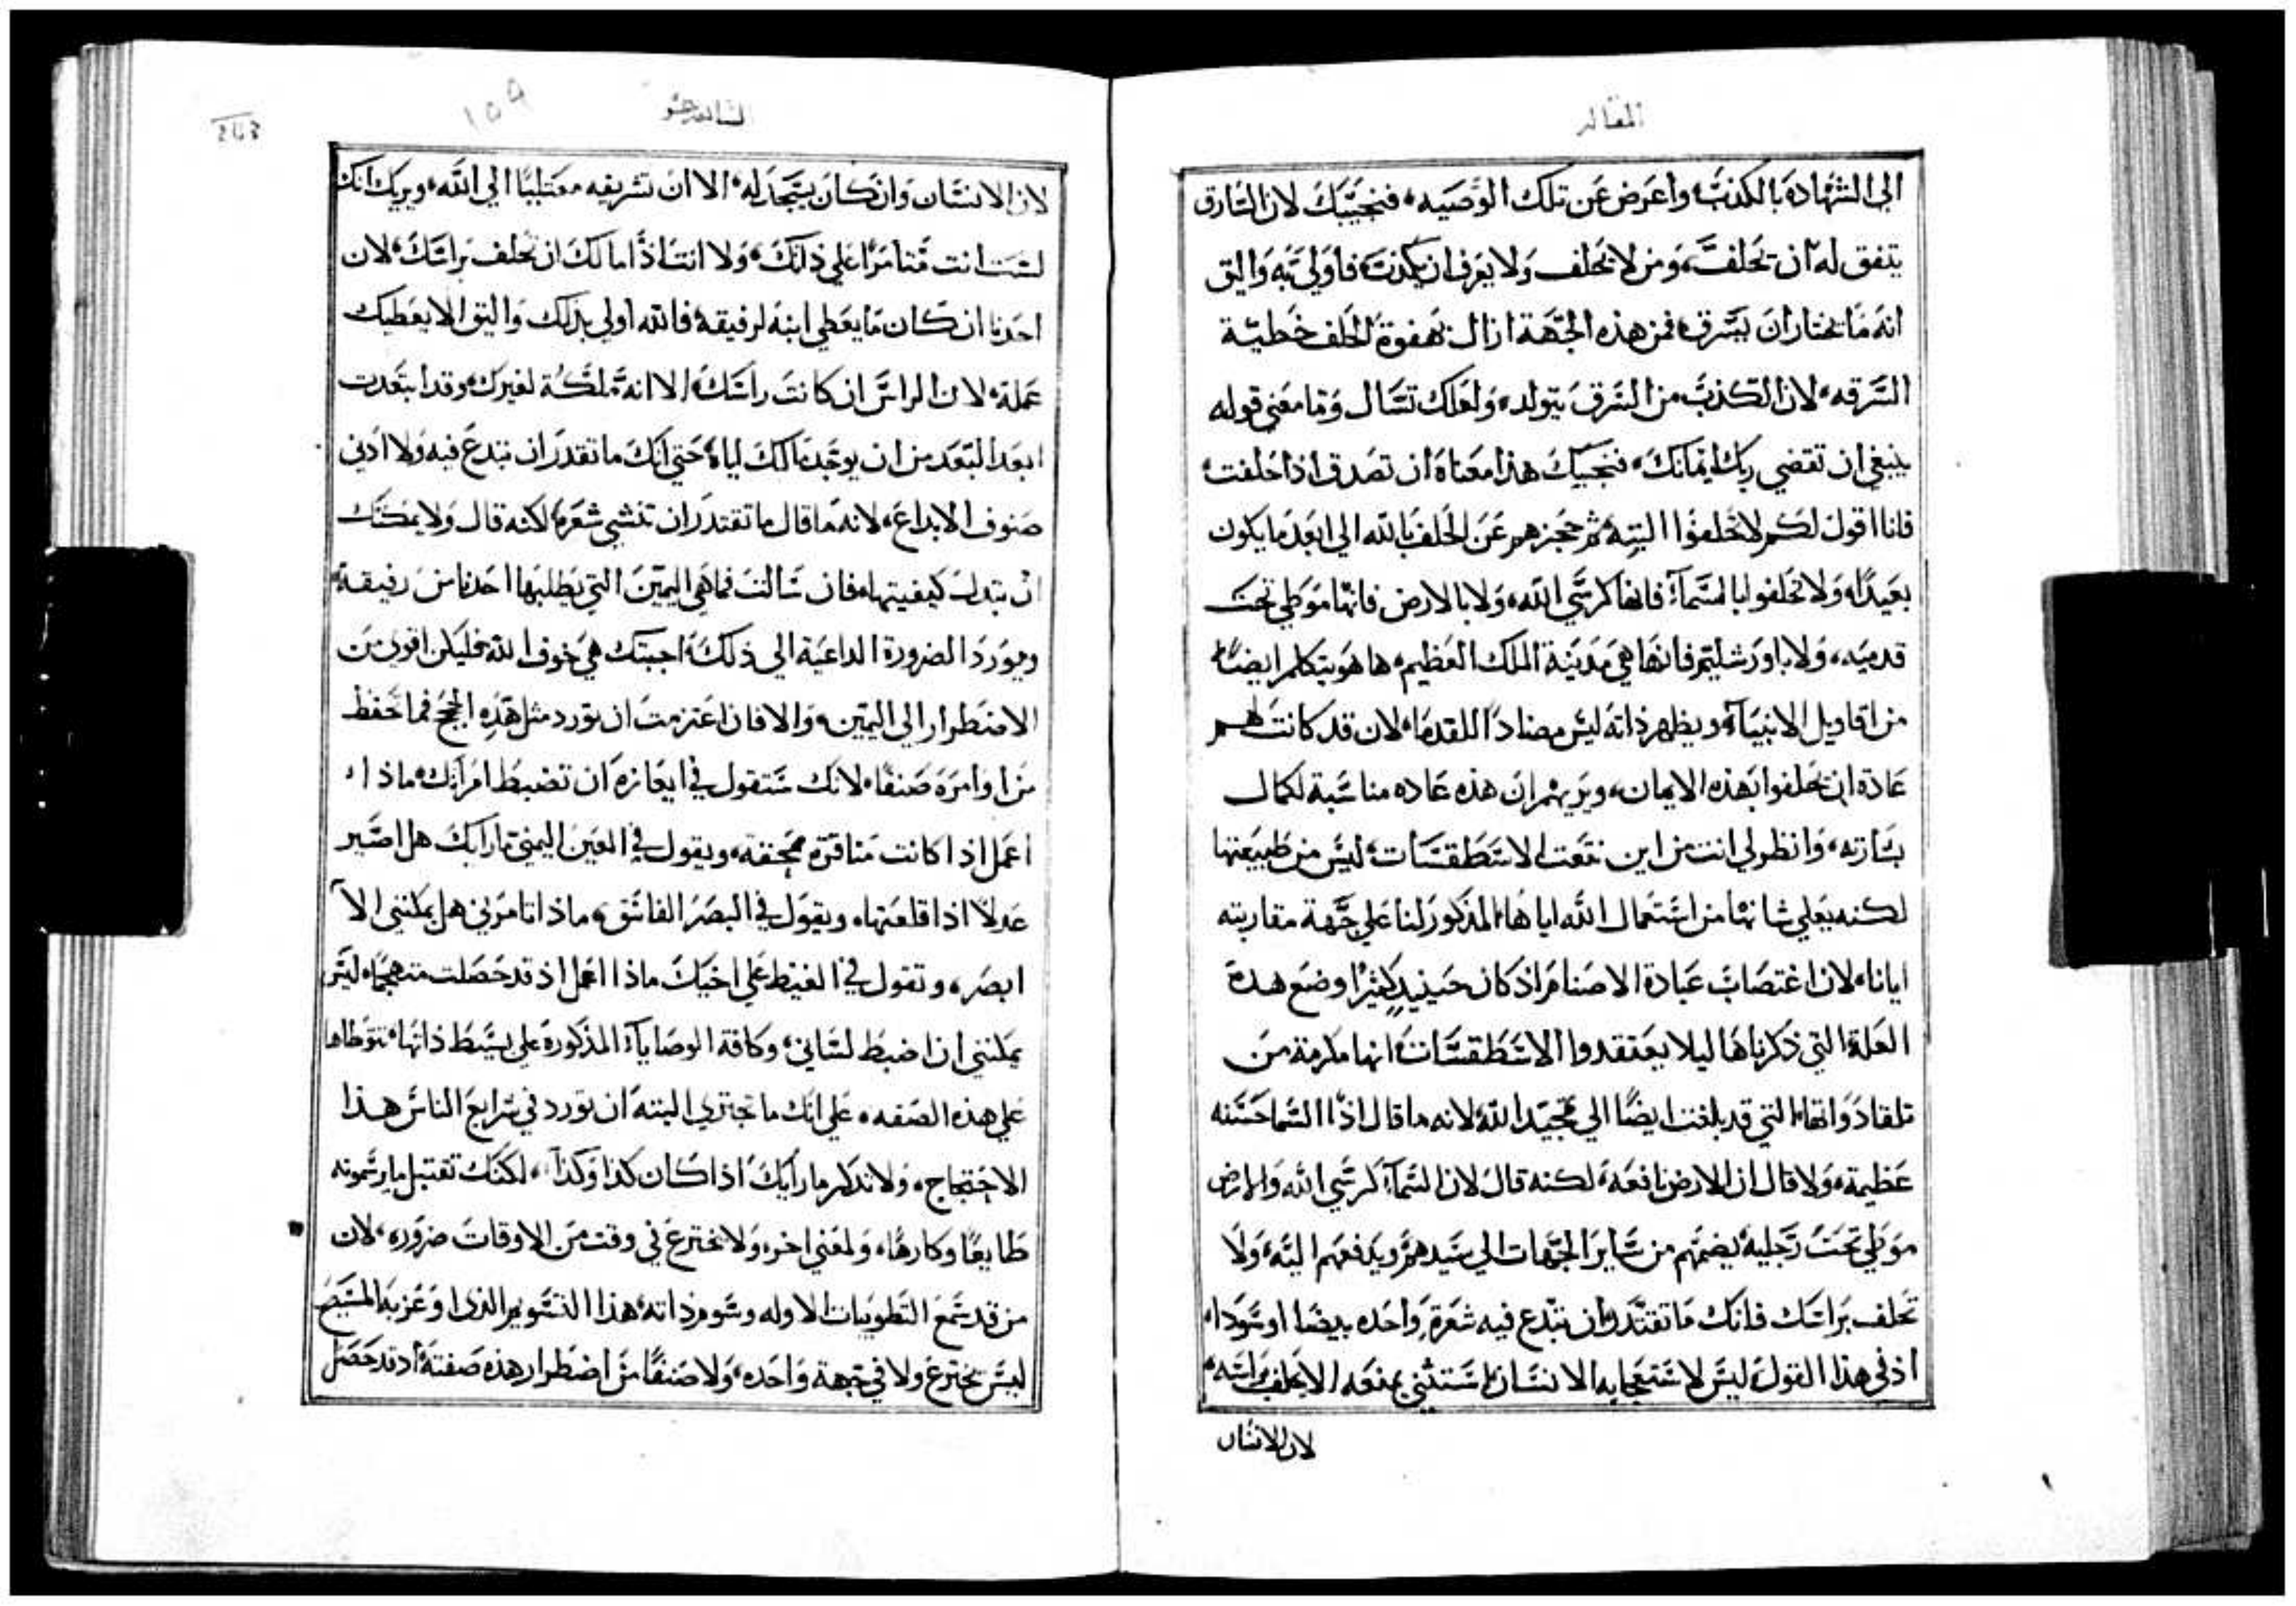 المقاله
الى الشهادة بالكذب، واعرض عن تلك الوصيه، فنجيبك لان السارق
يتفق له ان يحلف، ومن لا يحلف ولا يعرف ان يكذب، فاولى به واليق
انه ما يختار ان يسرق، فمن هذه الجهة ازال بهفوة الحلف خطية
السرقه، لان الكذب من السرق يتولد، ولعلك تسال وما معني قوله
ينبغي ان تقضي ربك ايمانك، فنجيبك هذا معناه ان تصدق اذا حلفت،
فانا اقول لكم لا تحلفوا البته، ثم حجزهم عن الحلف بالله الى ابعد ما يكون
بعيدًا، ولا تحلفوا بالسمآء فانها كرسي الله، ولا بالارض فانها موطي تحت
قدميه، ولا باورشليم فانها هي مدينة الملك العظيم، ها هو يتكلم ايضًا
من اقاويل الانبيآء، ويظهر ذاته ليس مضادًا للقدما، لان قد كانت لهم
عادة ان يحلفوا بهذه الايمان، ويريهم ان هذه عاده مناسبة لكمال
بشارته، وانظر لي انت من اين نتعت الاسطقسات، ليس من طبيعتها
لكنه يعلي شانها من استعمال الله اياها، المذكور لنا علي جهة مقاربته
ايانا، لان اغتصاب عبادة الاصنام اذ كان حينيذ كثيرًا وضع هذه
العلة التي ذكرناها ليلا يعتقدوا الاسطقسات، انها مكرمة من
تلقا ذواتها، التي قد بلغت ايضًا الى تمجيد الله، لانه ما قال اذًا السما حسنه
عظيمة، ولا قال ان الارض نافعه، لكنه قال لان السمآء كرسي الله والارض
موطي تحت رجليه، يضمهم من ساير الجهات الى سيدهم ويدفعهم اليه، ولا
تحلف براسك فانك ما تقتدر ان تبدع فيه شعرة واحده بيضا او سودا،
اذ في هذا القول ليس لاستعجابه الانسان استثني بمنعه الا يحلف براسه،
لان الانسان
السابعه عشر
١٥٩
243
لان الانسان وان كان يسجد له، الا ان تشريفه معتليًا الي الله، ويريك انك
لست انت متامرًا علي ذلك، ولا انت اذًا مالك ان تحلف براسك، لان
احدنا ان كان ما يعطي ابنه لرفيقه، فالله اولى بذلك واليق الا يعطيك
عمله، لان الراس ان كانت راسك، الا انه ملكة لغيرك، وقد ابتعدت
ابعد البعد من ان يوجد مالك اياه، حتي انك ما تقدر ان تبدع فيه ولا ادني
صنوف الابداع، لانه ما قال ما تقتدر ان تنشي شعره، لكنه قال ولا يمكنك
ان تبدل كيفيتها، فان سالت فما هي اليمين التي يطلبها احدنا من رفيقه،
ويورد الضرورة الداعية الى ذلك، اجبتك هي خوف الله، فليكن اقوى من
الاضطرار الى اليمين، والا فان اعتزمت ان تورد مثل هذه الحجج فما تحفظ
من اوامره صنفًا، لانك ستقول في ايعازه ان تضبط امراتك، ماذا
اعمل اذا كانت مناقرة محنقه، ويقول في العين اليمني ما رايك هل اصير
عدلاً اذا قلعتها، ويقول في البصر الفاسق، ماذا تامرني هل يمكنني الآ
ابصر، وتقول في الغيظ علي اخيك ماذا اعمل اذ قد حصلت متهجمًا، ليس
يمكنني ان اضبط لساني، وكافة الوصايآء المذكورة علي بسيط ذاتها، تتوطاها
علي هذه الصفه، علي انك ما تجتري البتة ان تورد في شرايع الناس هذا
الاحتجاج، ولا تذكر ما رايك اذا كان كذا وكذا، لكنك تقتبل ما يرسمونه
طايعًا وكارهًا، ولمعني اخر، ولا تخترع في وقت من الاوقات ضروره، لان
من قد سمع التطوبيات الاوله وسوم ذاته، هذا التسويم الذي اوعز به المسيح
ليس يخترع ولا في جهة واحده، ولا صنفًا من اضطرار هذه صفته، اذ قد حصل